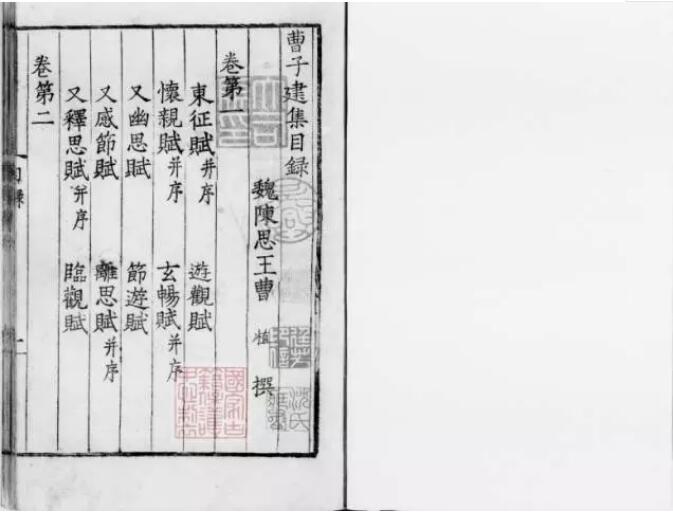 曹子建集目録
魏陳思王曹植撰
卷第一
東征賦并序 遊觀賦
懷親賦并序 玄暢賦并序
又幽思賦 節遊賦
又感節賦 離思賦并序
又釋思賦并序 臨觀賦
卷第二
目録
一